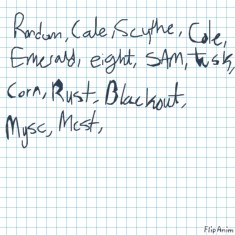 Random, Cale, Scythe, Cole,
Emerald, eight, SAM, Tusk,
Corn, Rust, Blackout,
Mysc, Mcst,
FlipAnim